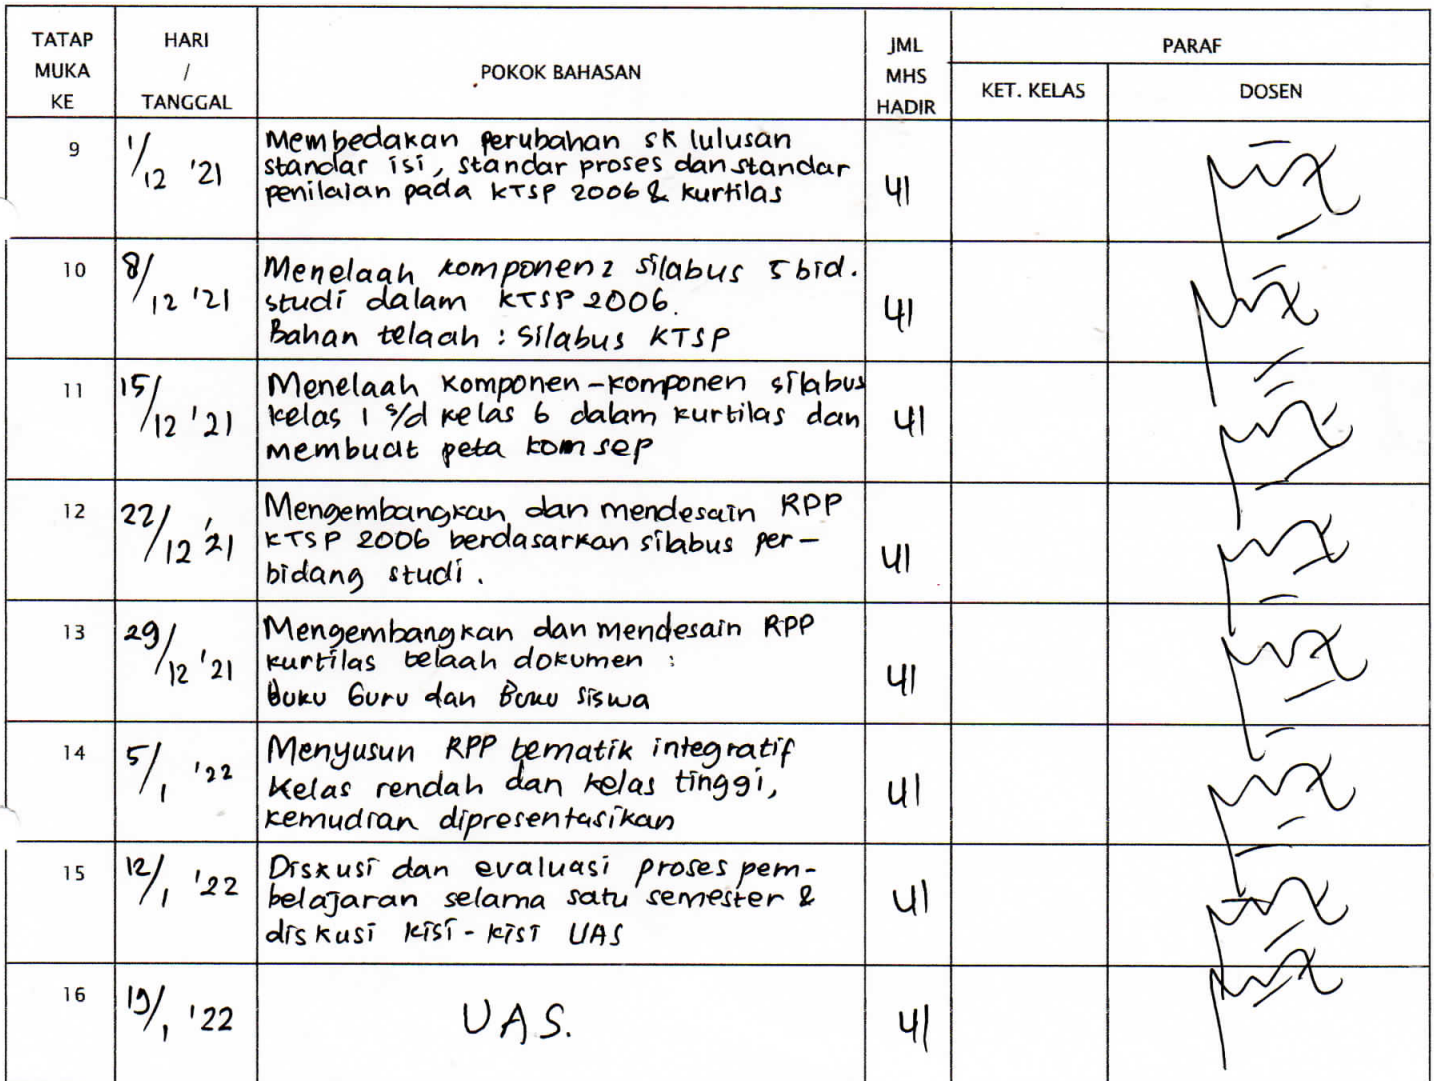 TATAP MUKA KE
HARI / TANGGAL
POKOK BAHASAN
JML MHS HADIR
PARAF
KET. KELAS
DOSEN
9
1/12 '21
Membedakan perubahan sk lulusan
standar isi, standar proses dan standar
penilaian pada KTSP 2006 & kurtilas
41
10
8/12 '21
Menelaah komponen2 silabus 5 bid.
studi dalam KTSP 2006.
Bahan telaah : Silabus KTSP
41
11
15/12 '21
Menelaah komponen-komponen silabus
kelas 1 s/d kelas 6 dalam kurtilas dan
membuat peta komsep
41
12
22/12 '21
Mengembangkan dan mendesain RPP
KTSP 2006 berdasarkan silabus per-
bidang studi.
41
13
29/12 '21
Mengembangkan dan mendesain RPP
kurtilas telaah dokumen :
Buku Guru dan Buku siswa
41
14
5/1 '22
Menyusun RPP tematik integratif
kelas rendah dan kelas tinggi,
kemudian dipresentasikan
41
15
12/1 '22
Diskusi dan evaluasi proses pem-
belajaran selama satu semester &
diskusi kisi-kisi UAS
41
16
19/1 '22
UAS.
41